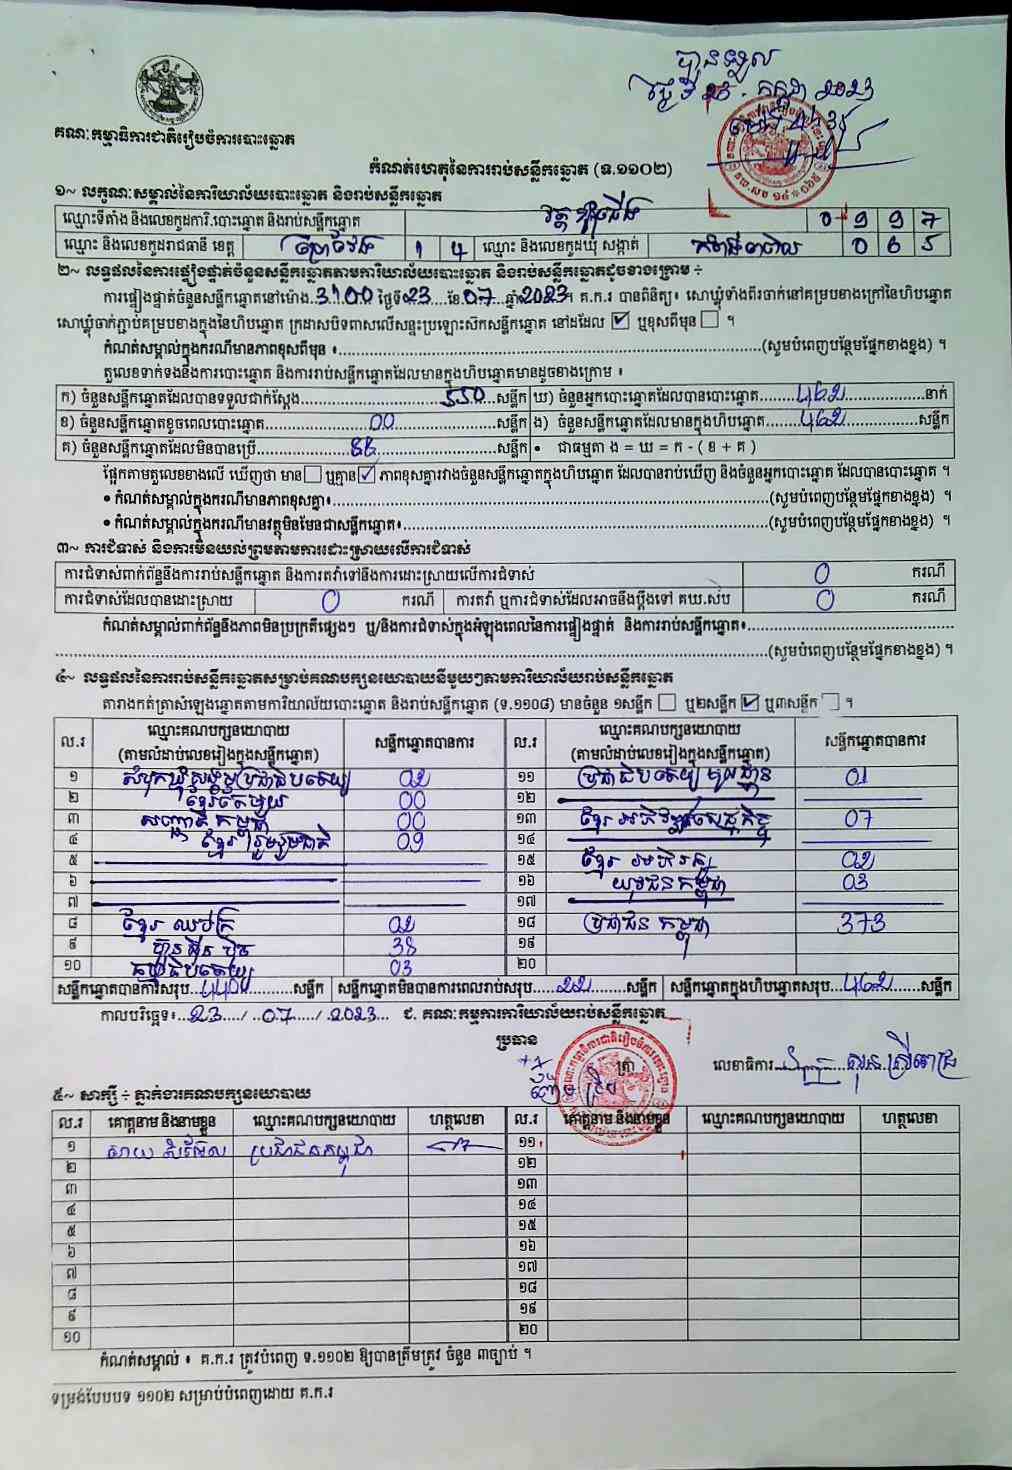 បានទទួល
ថ្ងៃទី 25 . កក្កដា 2023
គណៈកម្មាធិការជាតិរៀបចំការបោះឆ្នោត
កំណត់ហេតុនៃការរាប់សន្លឹកឆ្នោត (ទ.១១០២)
១~ លក្ខណៈសម្គាល់នៃការិយាល័យបោះឆ្នោត និងរាប់សន្លឹកឆ្នោត
ឈ្មោះទីតាំង និងលេខកូដការិ.បោះឆ្នោត និងរាប់សន្លឹកឆ្នោត វត្ត 0 9 9 7
ឈ្មោះ និងលេខកូដរាជធានី ខេត្ត ព្រៃវែង 1 4 ឈ្មោះ និងលេខកូដឃុំ សង្កាត់ 0 6 5
២~ លទ្ធផលនៃការផ្ទៀងផ្ទាត់ចំនួនសន្លឹកឆ្នោតតាមការិយាល័យបោះឆ្នោត និងរាប់សន្លឹកឆ្នោតដូចខាងក្រោម ÷
ការផ្ទៀងផ្ទាត់ចំនួនសន្លឹកឆ្នោតនៅម៉ោង 3:00 ថ្ងៃទី 23 ខែ 07 ឆ្នាំ 2023 ។ គ.ក.រ បានពិនិត្យ៖ សោឃ្លុំទាំងពីរចាក់នៅគម្របខាងក្រៅនៃហិបឆ្នោត
សោឃ្លុំចាក់ភ្ជាប់គម្របខាងក្នុងនៃហិបឆ្នោត ក្រដាសបិទពាសលើសន្ទះប្រឡោះស៊កសន្លឹកឆ្នោត នៅដដែល ☑ ឬខុសពីមុន ☐ ។
កំណត់សម្គាល់ក្នុងករណីមានភាពខុសពីមុន ៖ (សូមបំពេញបន្ថែមផ្នែកខាងខ្នង) ។
តួលេខទាក់ទងនឹងការបោះឆ្នោត និងការរាប់សន្លឹកឆ្នោតដែលមានក្នុងហិបឆ្នោតមានដូចខាងក្រោម ៖
ក) ចំនួនសន្លឹកឆ្នោតដែលបានទទួលជាក់ស្តែង 550 សន្លឹក ឃ) ចំនួនអ្នកបោះឆ្នោតដែលបានបោះឆ្នោត 462 នាក់
ខ) ចំនួនសន្លឹកឆ្នោតខូចពេលបោះឆ្នោត 00 សន្លឹក ង) ចំនួនសន្លឹកឆ្នោតដែលមានក្នុងហិបឆ្នោត 462 សន្លឹក
គ) ចំនួនសន្លឹកឆ្នោតដែលមិនបានប្រើ 88 សន្លឹក • ជាធម្មតា ង = ឃ = ក - ( ខ + គ )
ផ្អែកតាមតួលេខខាងលើ ឃើញថា មាន ☐ ឬគ្មាន ☑ ភាពខុសគ្នារវាងចំនួនសន្លឹកឆ្នោតក្នុងហិបឆ្នោត ដែលបានរាប់ឃើញ និងចំនួនអ្នកបោះឆ្នោត ដែលបានបោះឆ្នោត ។
• កំណត់សម្គាល់ក្នុងករណីមានភាពខុសគ្នា៖ (សូមបំពេញបន្ថែមផ្នែកខាងខ្នង) ។
• កំណត់សម្គាល់ក្នុងករណីមានវត្ថុមិនមែនជាសន្លឹកឆ្នោត៖ (សូមបំពេញបន្ថែមផ្នែកខាងខ្នង) ។
៣~ ការជំទាស់ និងការមិនយល់ព្រមតាមការដោះស្រាយលើការជំទាស់
ការជំទាស់ពាក់ព័ន្ធនឹងការរាប់សន្លឹកឆ្នោត និងការតវ៉ាទៅនឹងការដោះស្រាយលើការជំទាស់ 0 ករណី
ការជំទាស់ដែលបានដោះស្រាយ 0 ករណី ការតវ៉ា ឬការជំទាស់ដែលអាចនឹងប្តឹងទៅ គឃ.សប 0 ករណី
កំណត់សម្គាល់ពាក់ព័ន្ធនឹងភាពមិនប្រក្រតីផ្សេងៗ ឬ/និងការជំទាស់ក្នុងអំឡុងពេលនៃការផ្ទៀងផ្ទាត់ និងការរាប់សន្លឹកឆ្នោត៖
(សូមបំពេញបន្ថែមផ្នែកខាងខ្នង) ។
៤~ លទ្ធផលនៃការរាប់សន្លឹកឆ្នោតសម្រាប់គណបក្សនយោបាយនីមួយៗតាមការិយាល័យរាប់សន្លឹកឆ្នោត
តារាងកត់ត្រាសំឡេងឆ្នោតតាមការិយាល័យបោះឆ្នោត និងរាប់សន្លឹកឆ្នោត (ទ.១១០៨) មានចំនួន ១សន្លឹក ☐ ឬ២សន្លឹក ☑ ឬ៣សន្លឹក ☐ ។
ល.រ ឈ្មោះគណបក្សនយោបាយ (តាមលំដាប់លេខរៀងក្នុងសន្លឹកឆ្នោត) សន្លឹកឆ្នោតបានការ ល.រ ឈ្មោះគណបក្សនយោបាយ (តាមលំដាប់លេខរៀងក្នុងសន្លឹកឆ្នោត) សន្លឹកឆ្នោតបានការ
១ សំបុកឃ្មុំសង្គមប្រជាធិបតេយ្យ 02 ១១ ប្រជាធិបតេយ្យ មូលដ្ឋាន 01
២ ខ្មែរតែមួយ 00 ១២
៣ សញ្ជាតិ កម្ពុជា 00 ១៣ ខ្មែរ អភិវឌ្ឍន៍សេដ្ឋកិច្ច 07
៤ ខ្មែរ រួបរួមជាតិ 09 ១៤
៥ ១៥ ខ្មែរ អភិរក្ស 02
៦ ១៦ យុវជន កម្ពុជា 03
៧ ១៧
៨ ខ្មែរ ឈប់ក្រ 02 ១៨ ប្រជាជន កម្ពុជា 373
៩ ហ្វ៊ុនស៊ិនប៉ិច 38 ១៩
១០ ធម្មាធិបតេយ្យ 03 ២០
សន្លឹកឆ្នោតបានការសរុប 440 សន្លឹក សន្លឹកឆ្នោតមិនបានការពេលរាប់សរុប 22 សន្លឹក សន្លឹកឆ្នោតក្នុងហិបឆ្នោតសរុប 462 សន្លឹក
កាលបរិច្ឆេទ៖ 23 / 07 / 2023 ជ. គណៈកម្មការការិយាល័យរាប់សន្លឹកឆ្នោត
ប្រធាន
ត្រា លេខាធិការ
៥~ សាក្សី ÷ ភ្នាក់ងារគណបក្សនយោបាយ
ល.រ គោត្តនាម និងនាមខ្លួន ឈ្មោះគណបក្សនយោបាយ ហត្ថលេខា ល.រ គោត្តនាម និងនាមខ្លួន ឈ្មោះគណបក្សនយោបាយ ហត្ថលេខា
១ ប្រជាជនកម្ពុជា ១១
២ ១២
៣ ១៣
៤ ១៤
៥ ១៥
៦ ១៦
៧ ១៧
៨ ១៨
៩ ១៩
១០ ២០
កំណត់សម្គាល់ ៖ គ.ក.រ ត្រូវបំពេញ ទ.១១០២ ឱ្យបានត្រឹមត្រូវ ចំនួន ៣ច្បាប់ ។
ទម្រង់បែបបទ ១១០២ សម្រាប់បំពេញដោយ គ.ក.រ